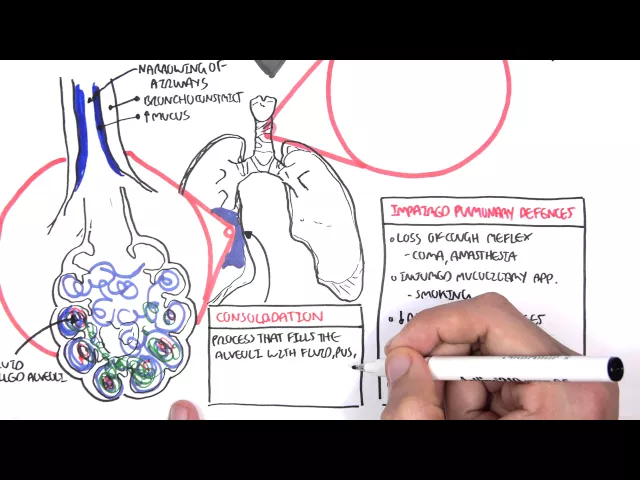 NARROWING OF
AIRWAYS
BRONCHOCONSTRICT
↑ MUCUS
FLUID
ALVEOLI
CONSOLIDATION
PROCESS THAT FILLS THE
ALVEOLI WITH FLUID, PUS,
IMPAIRED PULMONARY DEFENCES
LOSS OF COUGH REFLEX
- COMA, ANASTHESIA
INJURED MUCUCILIARY APP.
- SMOKING